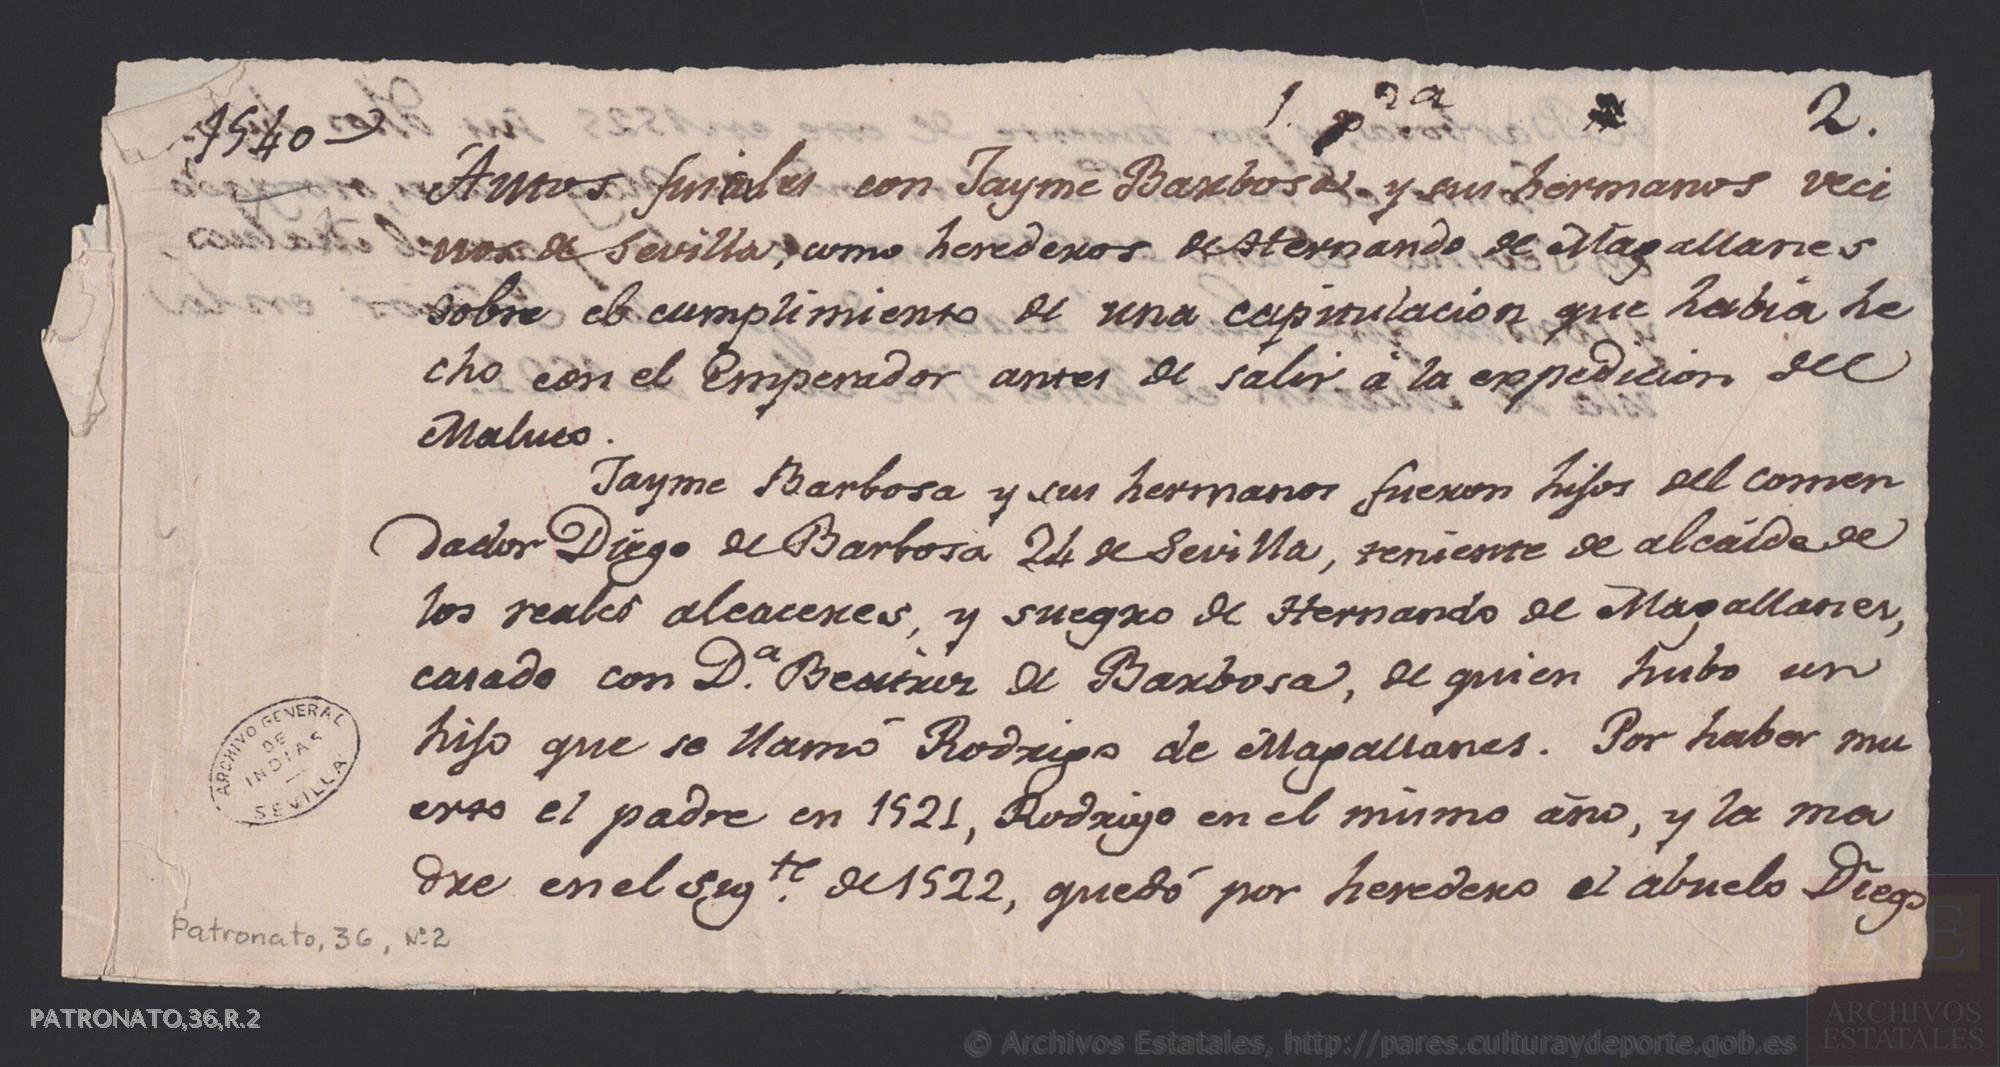 1540
1. p.ra 2.
Autos fiscales con Jayme Barbosa y sus hermanos veci
nos de Sevilla, como herederos de Hernando de Magallanes
sobre el cumplimiento de una capitulacion que habia he
cho con el Emperador antes de salir á la expedicion del
Maluco.
Jayme Barbosa y sus hermanos fueron hijos del comen
dador Diego de Barbosa 24 de Sevilla, teniente de alcáide de
los reales alcaceres, y suegro de Hernando de Magallanes,
casado con D.a Beatriz de Barbosa, de quien hubo un
hijo que se llamó Rodrigo de Magallanes. Por haber mu
erto el padre en 1521, Rodrigo en el mismo año, y la ma
dre en el sig.te de 1522, quedó por heredero el abuelo Diego
ARCHIVO GENERAL
DE
INDIAS
SEVILLA
Patronato, 36, Nº 2
PATRONATO,36,R.2
© Archivos Estatales, http://pares.culturaydeporte.gob.es
AE
ARCHIVOS
ESTATALES